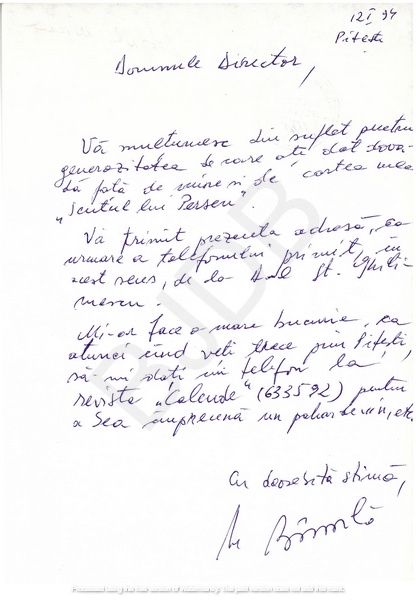 12 I 94
Pitești
Domnule Director,
Vă mulțumesc din suflet pentru
generozitatea de care ați dat dova-
dă față de mine și de cartea mea
„Scutul lui Perseu".
Vă trimit prezenta adresă, ca
urmare a telefonului primit, în
acest sens, de la d-l St. Ghili-
mescu.
Mi-ar face o mare bucurie, ca
atunci cînd veți trece prin Pitești,
să-mi dați un telefon la
revista „Calende" (633592) pentru
a bea împreună un pahar de vin, etc.
Cu deosebită stimă,
BJDB